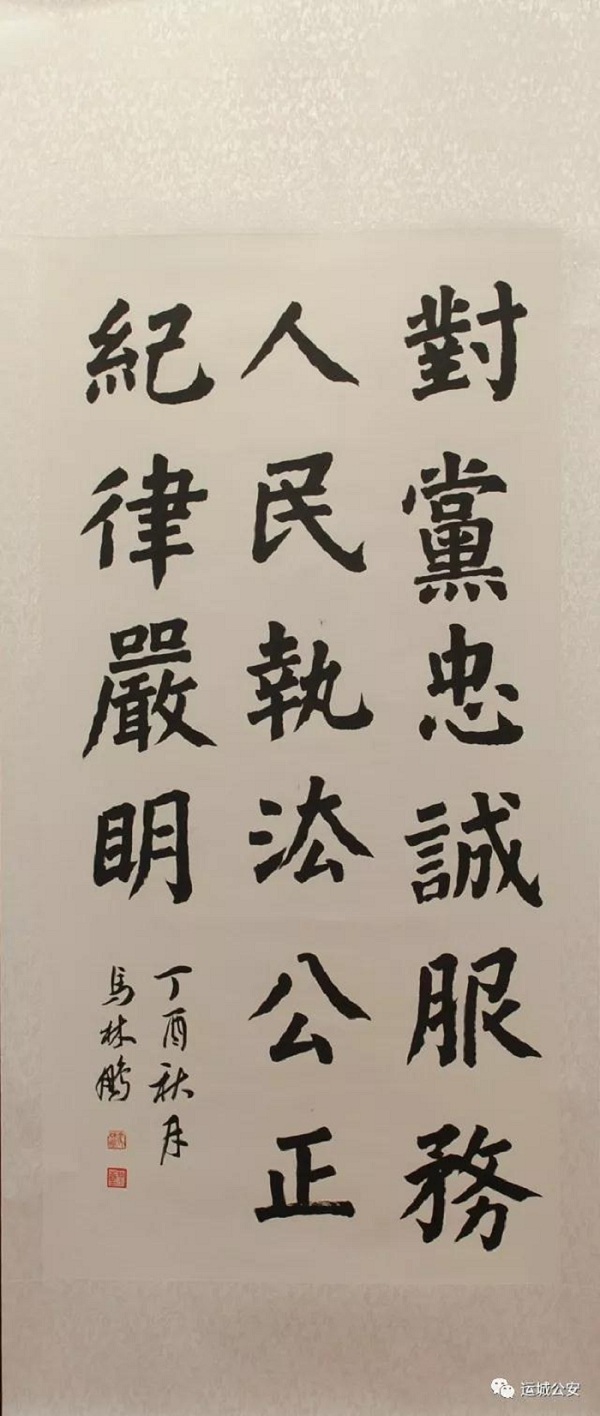 對黨忠誠服務
人民執法公正
紀律嚴明
丁酉秋月
馬林鵬
运城公安